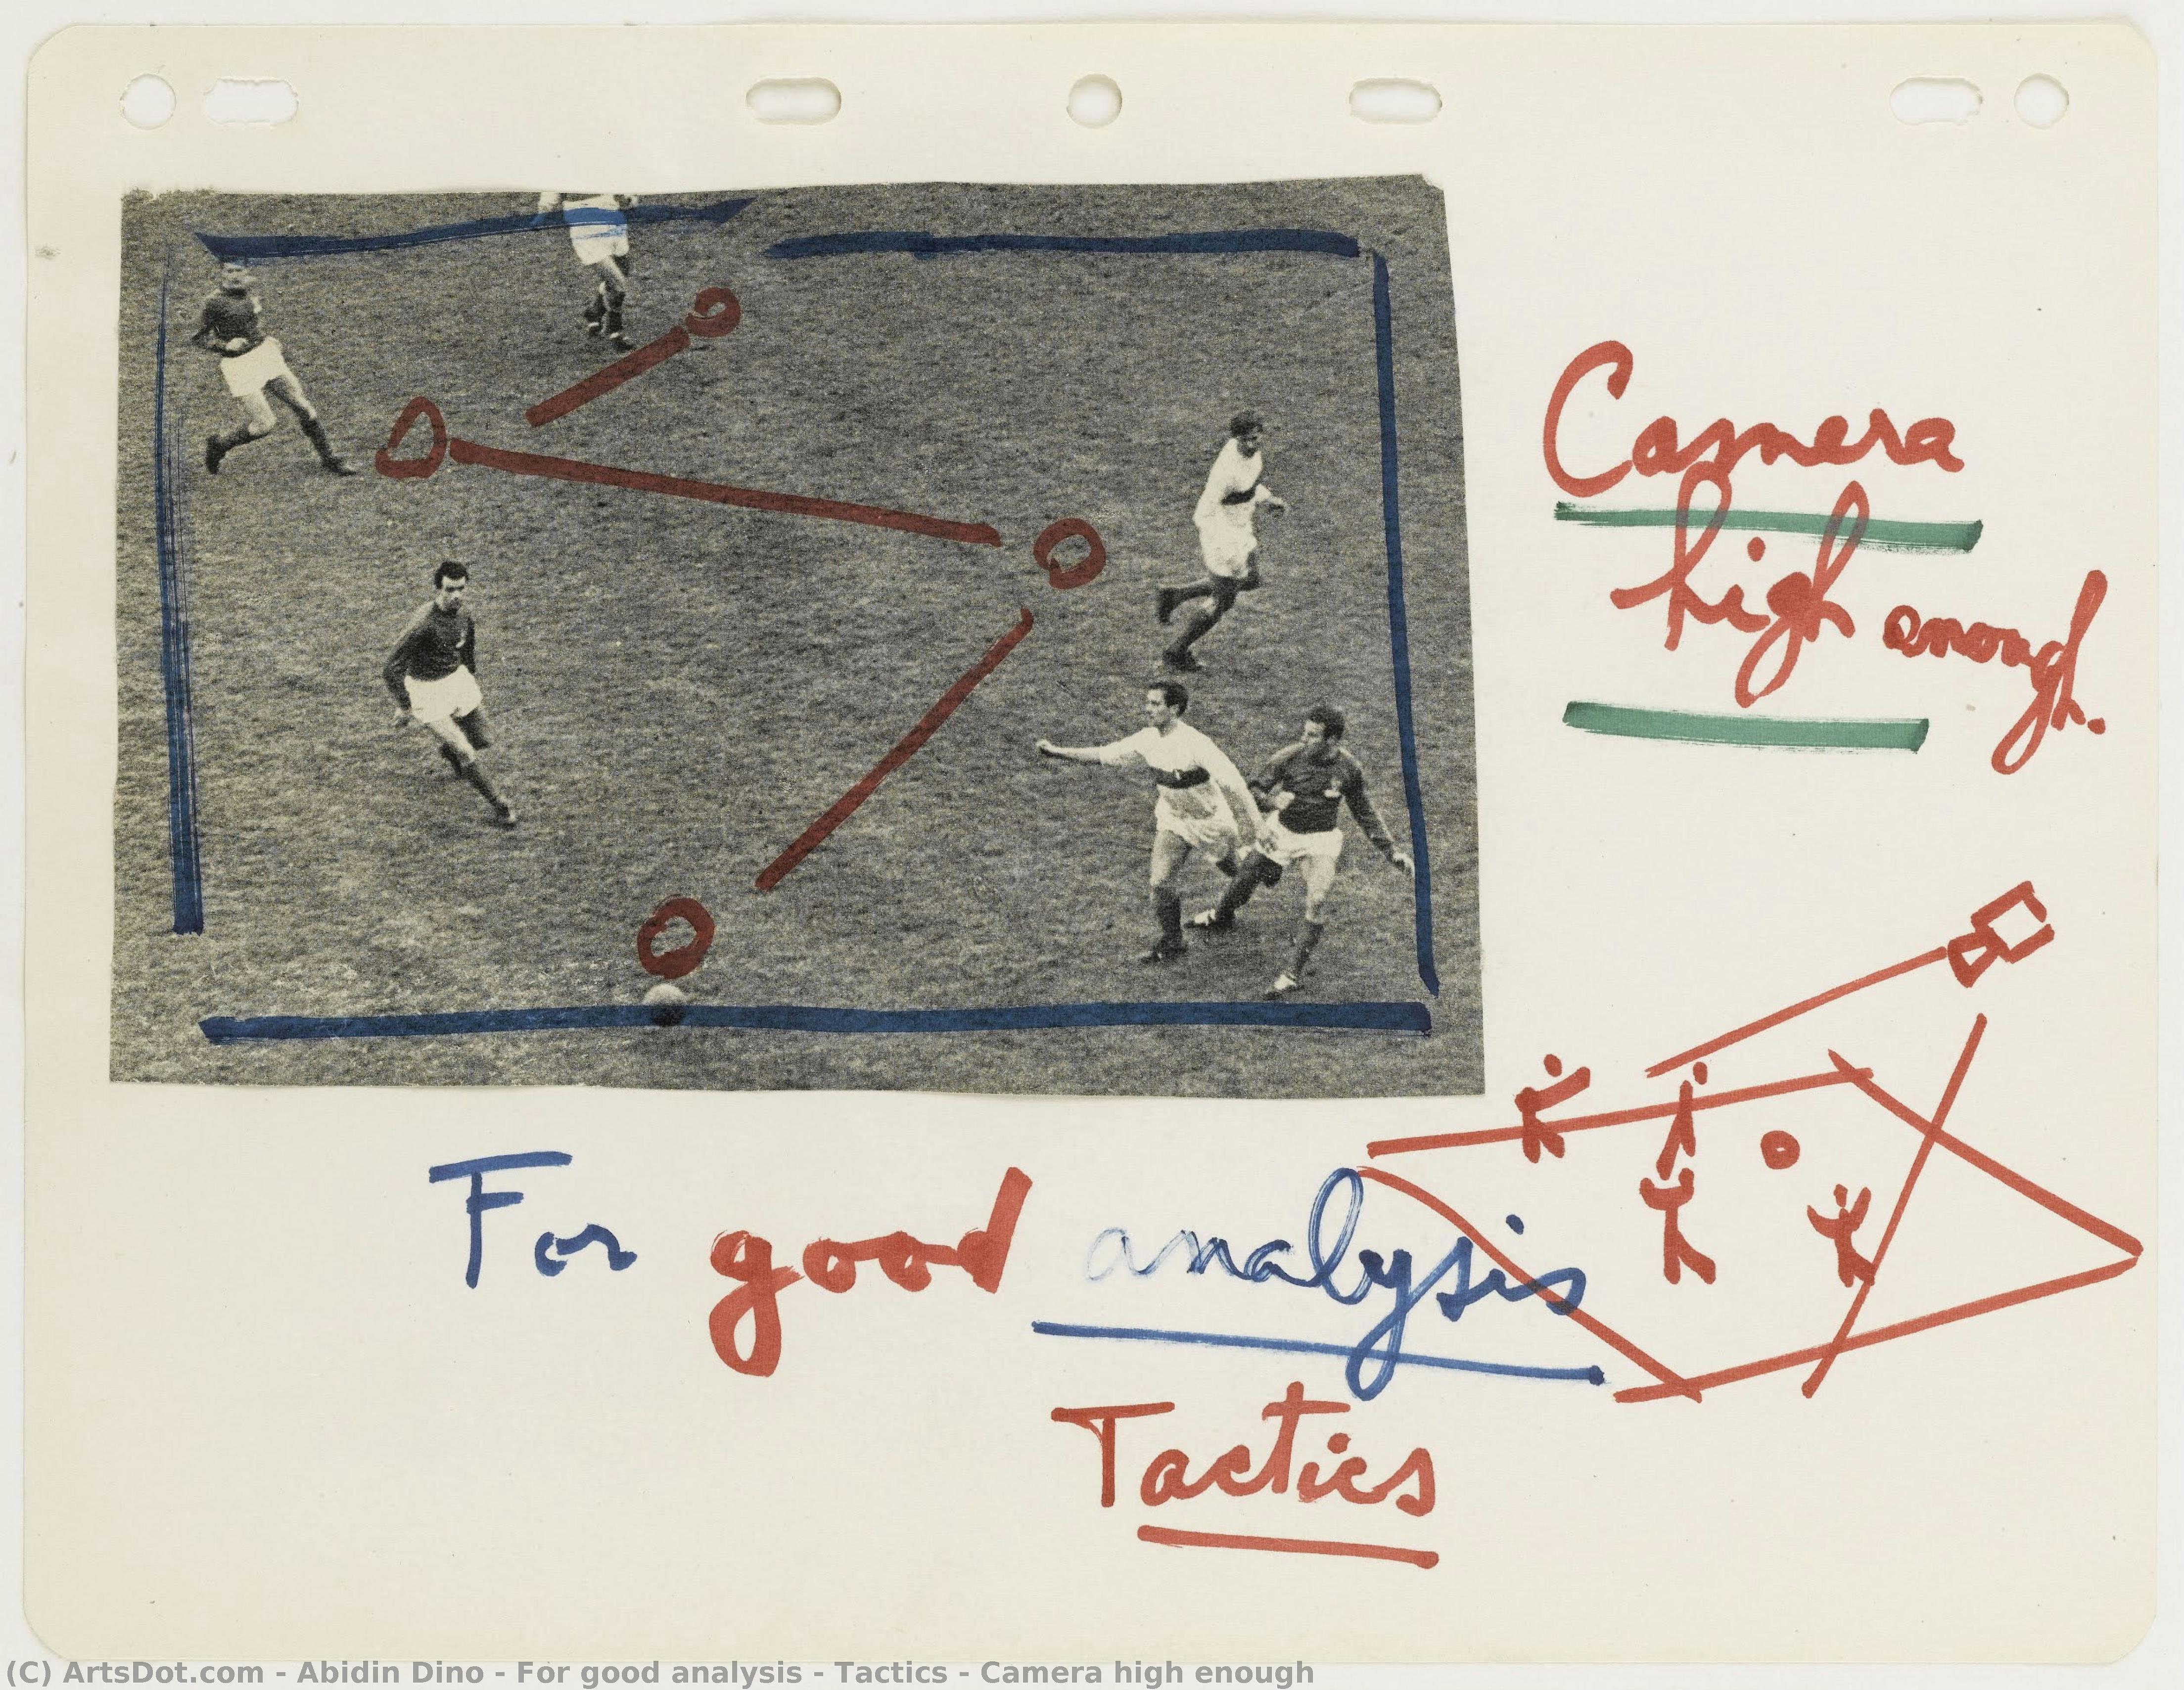 Camera
high enough.
For good analysis
Tactics
(C) ArtsDot.com - Abidin Dino - For good analysis - Tactics - Camera high enough